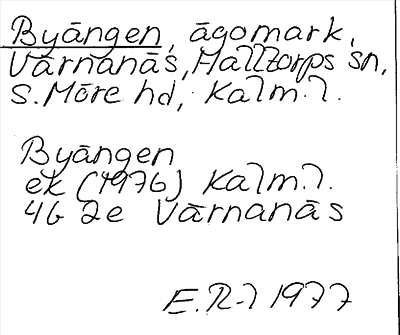 Byängen, ägomark,
Värnanäs, Halltorps sn,
S. Möre hd, Kalm. l.
Byängen
ek (1976) Kalm. l.
4G 2e Värnanäs
E.R-l 1977